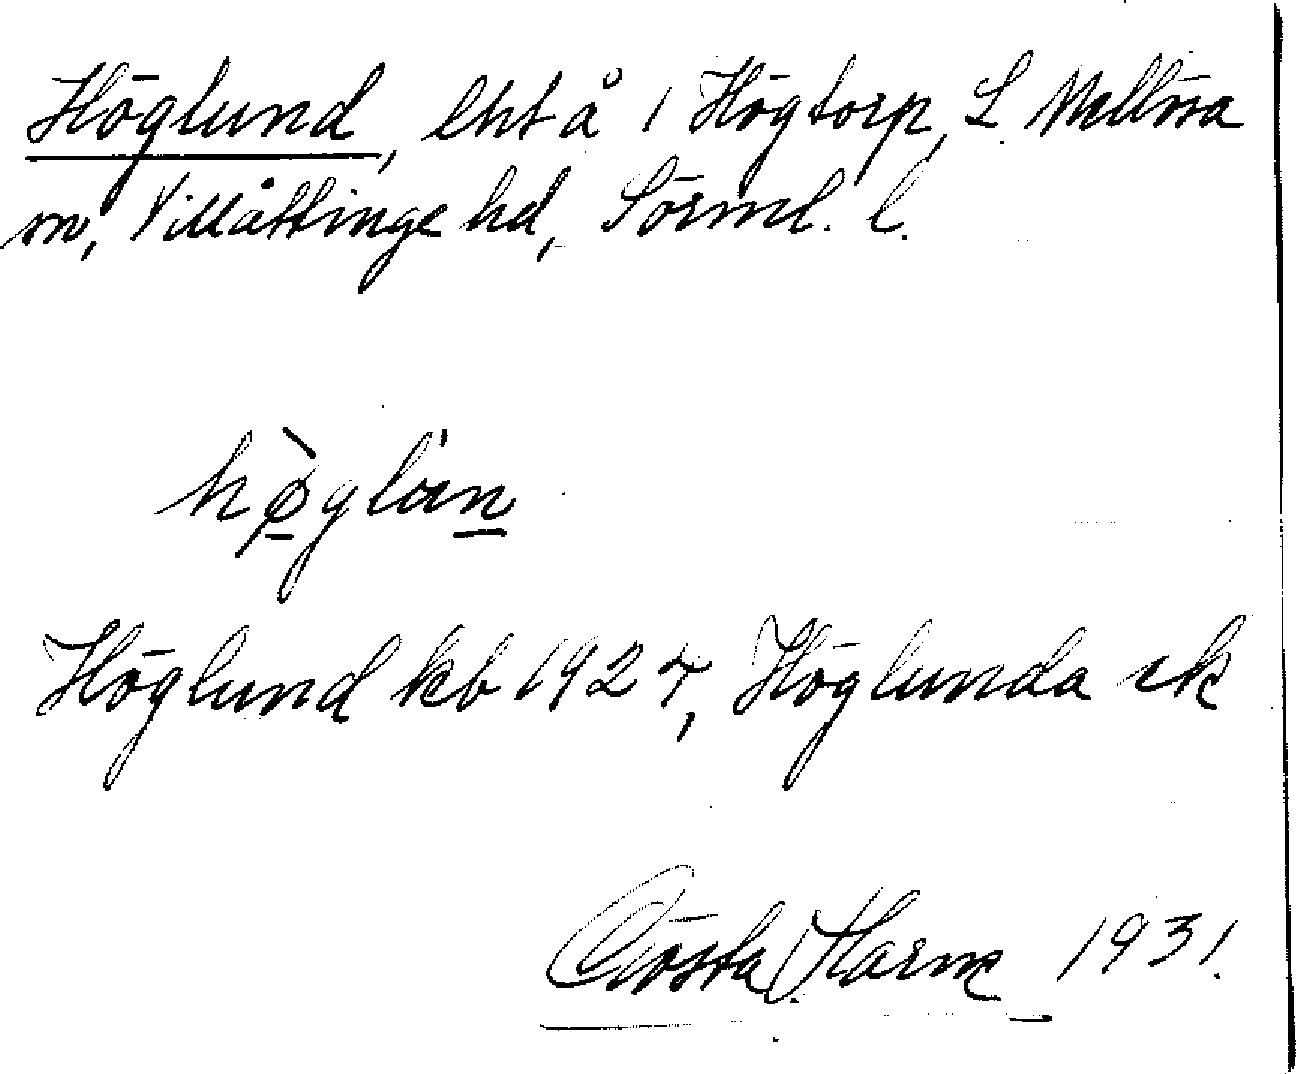 Höglund, lht å 1 Högtorp, L. Mellösa
sn, Villåttinge hd, Sörml. l.
höglún
Höglund kb 1924, Höglunda ek
Gösta Harme 1931.